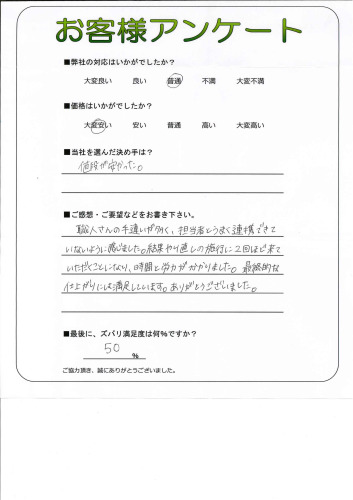 お客様アンケート
■弊社の対応はいかがでしたか？
大変良い 良い 普通 不満 大変不満
■価格はいかがでしたか？
大変安い 安い 普通 高い 大変高い
■当社を選んだ決め手は？
値段が安かった。
■ご感想・ご要望などをお書き下さい。
職人さんの手違いが多く、担当者とうまく連携できて
いないように感じました。結果やり直しの施行に2回ほど来て
いただくことになり、時間と労力がかかりました。最終的な
仕上がりには満足しています。ありがとうございました。
■最後に、ズバリ満足度は何％ですか？
50 ％
ご協力頂き、誠にありがとうございました。